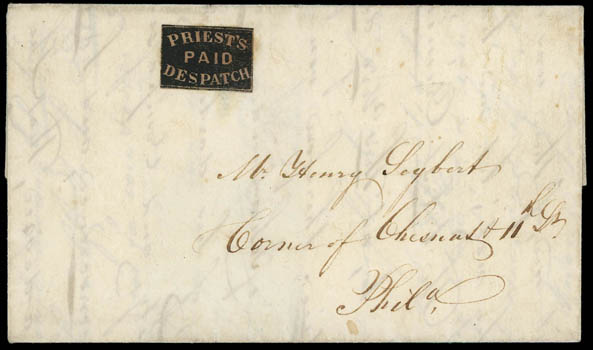 PRIEST'S
PAID
DESPATCH
Mr. Henry Seybert
Corner of Chesnut & 11th St.
Phila.